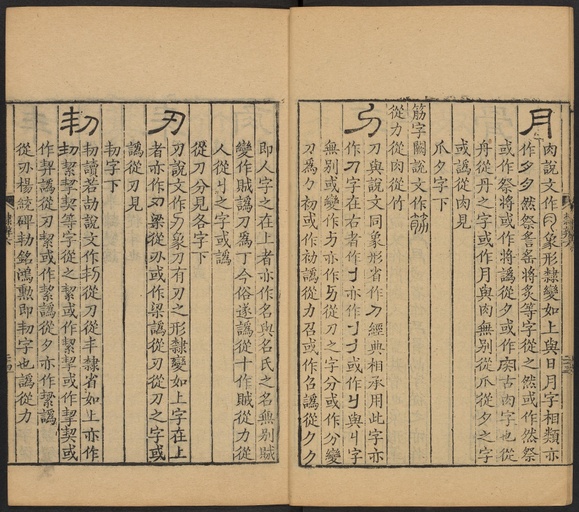 月
肉說文作⺼象形隸變如上與日月字相類亦
作夕夕然祭詧窰將炙等字從之然或作然祭
或作祭將或作將譌從夕或作肉古肉字也從
丹從丹之字或作月與肉無別從爪從夕之字
或譌從肉見
爪夕字下
筋字闕說文作筋
從力從肉從竹
刀
刀與說文同象形省作刀經典相承用此字亦
作刀字在右者作刂亦作刂或作刂與丩字
無別或變作方亦作另從刀之字分或作分變
刀爲刀初或作初譌從力召或作召譌從夕夕
即人字之在上者亦作名與名氏之名無別賊
變作賊譌刀爲丁今俗遂譌從十作賊從力從
人從丩之字或譌
從刀分見各字下
刃
刃說文作刃象刀有刃之形隸變如上字在上
者亦作刃梁從刅或作梁譌從刃從刀之字或
譌從刃見
㓞字下
㓞
㓞讀若劼說文作㓞從刀從丯隸省如上亦作
㓞絜挈契等字從之絜或作絜挈或作挈契或
作契譌從刃絜或作絜譌從夕亦作絜譌
從刃楊統碑㓞銘鴻勳即㓞字也譌從力